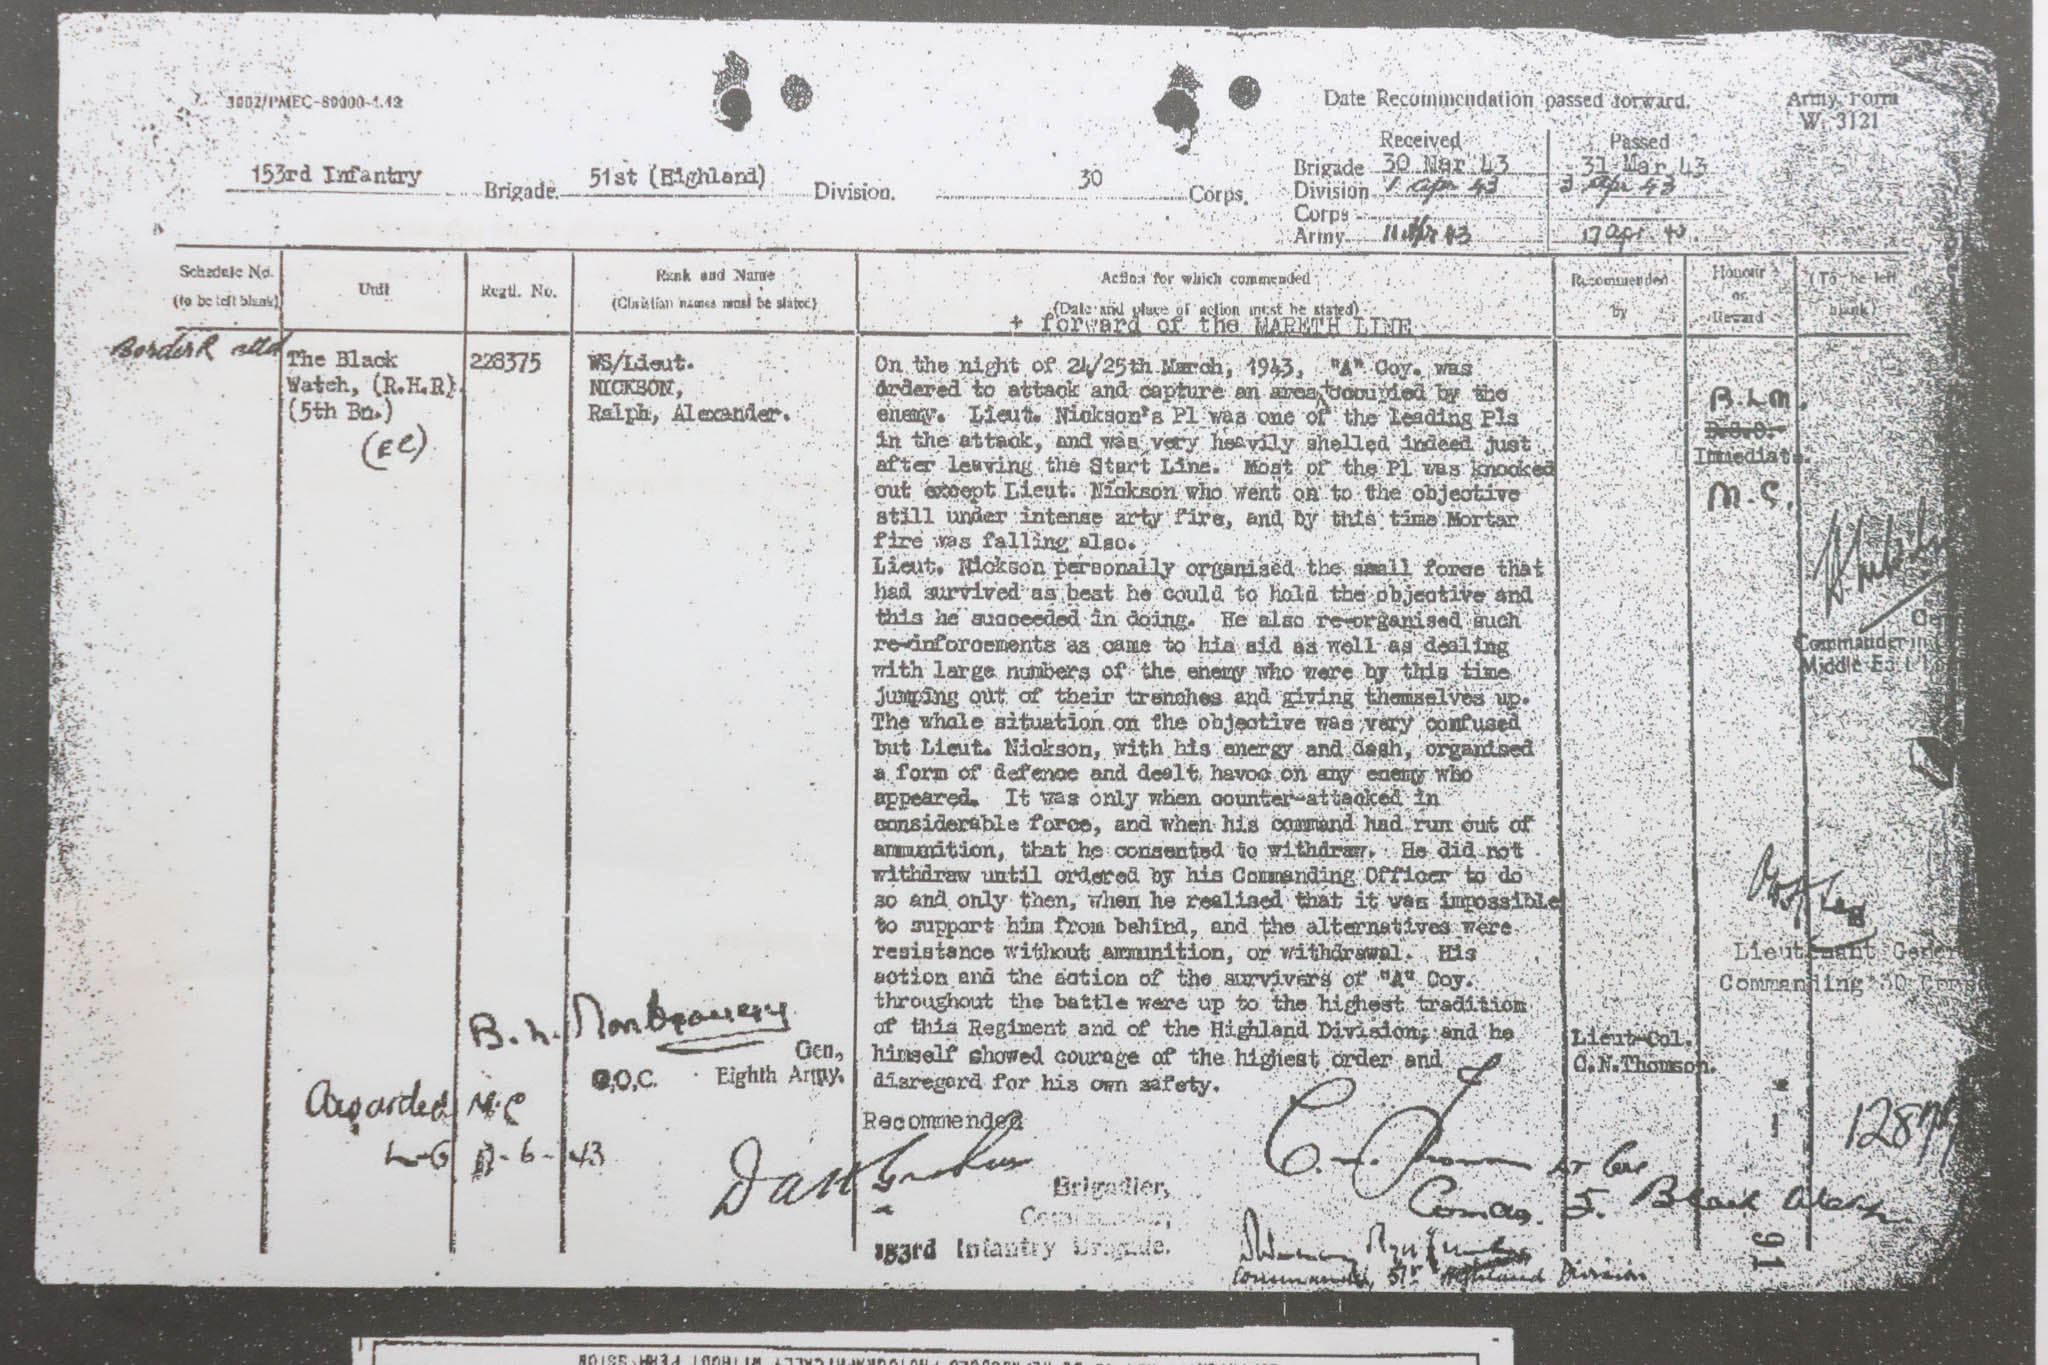 3002/PMEC-80000-4.42
Date Recommendation passed forward.
Army Form
W. 3121
Received
Passed
153rd Infantry Brigade. 51st (Highland) Division. 30 Corps.
Brigade 30 Mar 43 31 Mar 43
Division 1 Apr 43 3 Apr 43
Corps
Army 17 Apr
Schedule No.
(to be left blank)
Unit
Regtl. No.
Rank and Name
(Christian names must be stated)
Action for which commended
(Date and place of action must be stated)
Recommended
by
Honour
or
Reward
(To be left
blank)
+ forward of the MARETH LINE
Border R attd
The Black
Watch, (R.H.R).
(5th Bn.)
(EC)
228375
WS/Lieut.
NICKSON,
Ralph, Alexander.
On the night of 24/25th March, 1943, "A" Coy. was
ordered to attack and capture an area + occupied by the
enemy. Lieut. Nickson's Pl was one of the leading Pls
in the attack, and was very heavily shelled indeed just
after leaving the Start Line. Most of the Pl was knocked
out except Lieut. Nickson who went on to the objective
still under intense arty fire, and by this time Mortar
fire was falling also.
Lieut. Nickson personally organised the small force that
had survived as best he could to hold the objective and
this he succeeded in doing. He also re-organised such
re-inforcements as came to his aid as well as dealing
with large numbers of the enemy who were by this time
jumping out of their trenches and giving themselves up.
The whole situation on the objective was very confused
but Lieut. Nickson, with his energy and dash, organised
a form of defence and dealt havoc on any enemy who
appeared. It was only when counter-attacked in
considerable force, and when his command had run out of
ammunition, that he consented to withdraw. He did not
withdraw until ordered by his Commanding Officer to do
so and only then, when he realised that it was impossible
to support him from behind, and the alternatives were
resistance without ammunition, or withdrawal. His
action and the action of the survivers of "A" Coy.
throughout the battle were up to the highest tradition
of this Regiment and of the Highland Division, and he
himself showed courage of the highest order and
disregard for his own safety.
Lieut-Col.
C.N.Thomson.
B.L.M.
D.S.O.
Immediate.
M.C.
Commander in
Middle East
Lieutenant Gener
Commanding 30 Corps
B. L. Montgomery
Gen.,
G.O.C. Eighth Army.
Awarded M.C
L-G
-6-43
Recommended
Brigadier,
Commander,
153rd Infantry Brigade.
Lt Col
Comdg. 5. Black Watch
Commander, 51st Highland Division
128
91